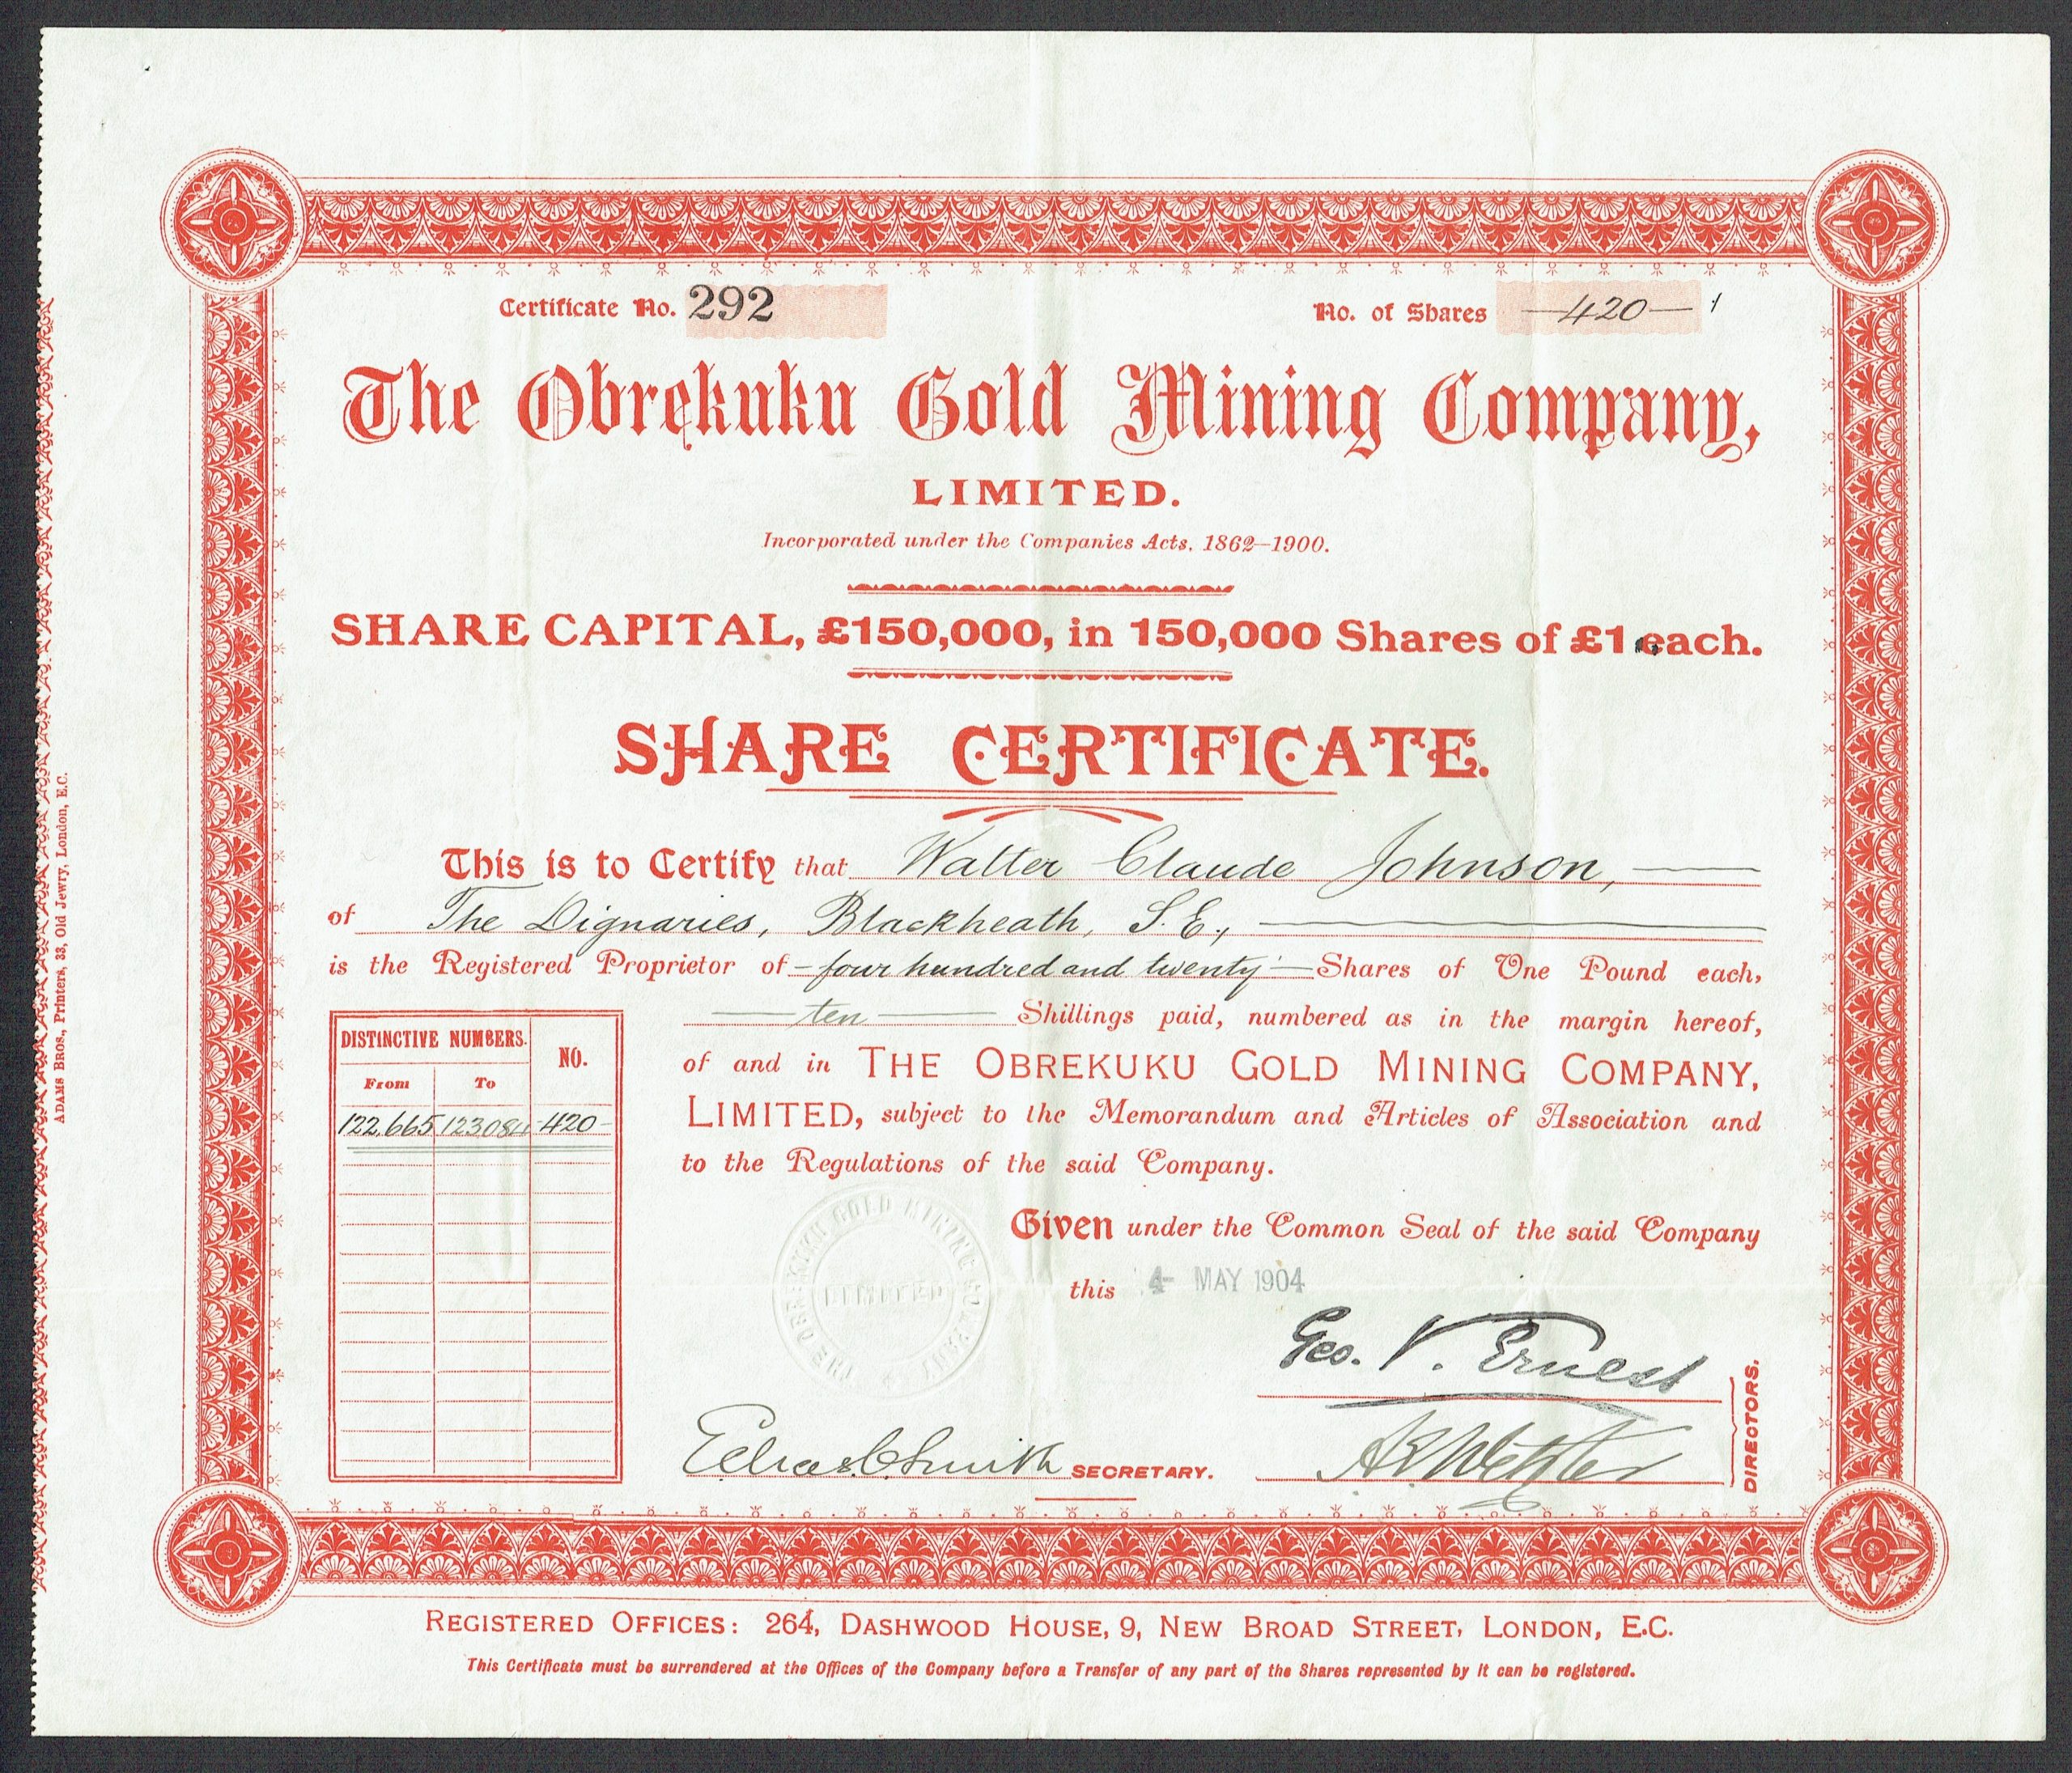 Certificate No. 292
No. of Shares —420—
The Obrekuku Gold Mining Company,
LIMITED.
Incorporated under the Companies Acts, 1862–1900.
SHARE CAPITAL, £150,000, in 150,000 Shares of £1 each.
SHARE CERTIFICATE.
This is to Certify that Walter Claude Johnson, —
of The Dignaries, Blackheath, S.E., —
is the Registered Proprietor of – four hundred and twenty – Shares of One Pound each,
— ten — Shillings paid, numbered as in the margin hereof,
of and in THE OBREKUKU GOLD MINING COMPANY,
LIMITED, subject to the Memorandum and Articles of Association and
to the Regulations of the said Company.
DISTINCTIVE NUMBERS. NO.
From To
122,665 123084 –420–
Given under the Common Seal of the said Company
this 4– MAY 1904
THE OBREKUKU GOLD MINING COMPANY
LIMITED
Geo. V. Ernest
Smith SECRETARY.
DIRECTORS.
REGISTERED OFFICES: 264, DASHWOOD HOUSE, 9, NEW BROAD STREET, LONDON, E.C.
This Certificate must be surrendered at the Offices of the Company before a Transfer of any part of the Shares represented by it can be registered.
ADAMS BROS., Printers, 33, Old Jewry, London, E.C.